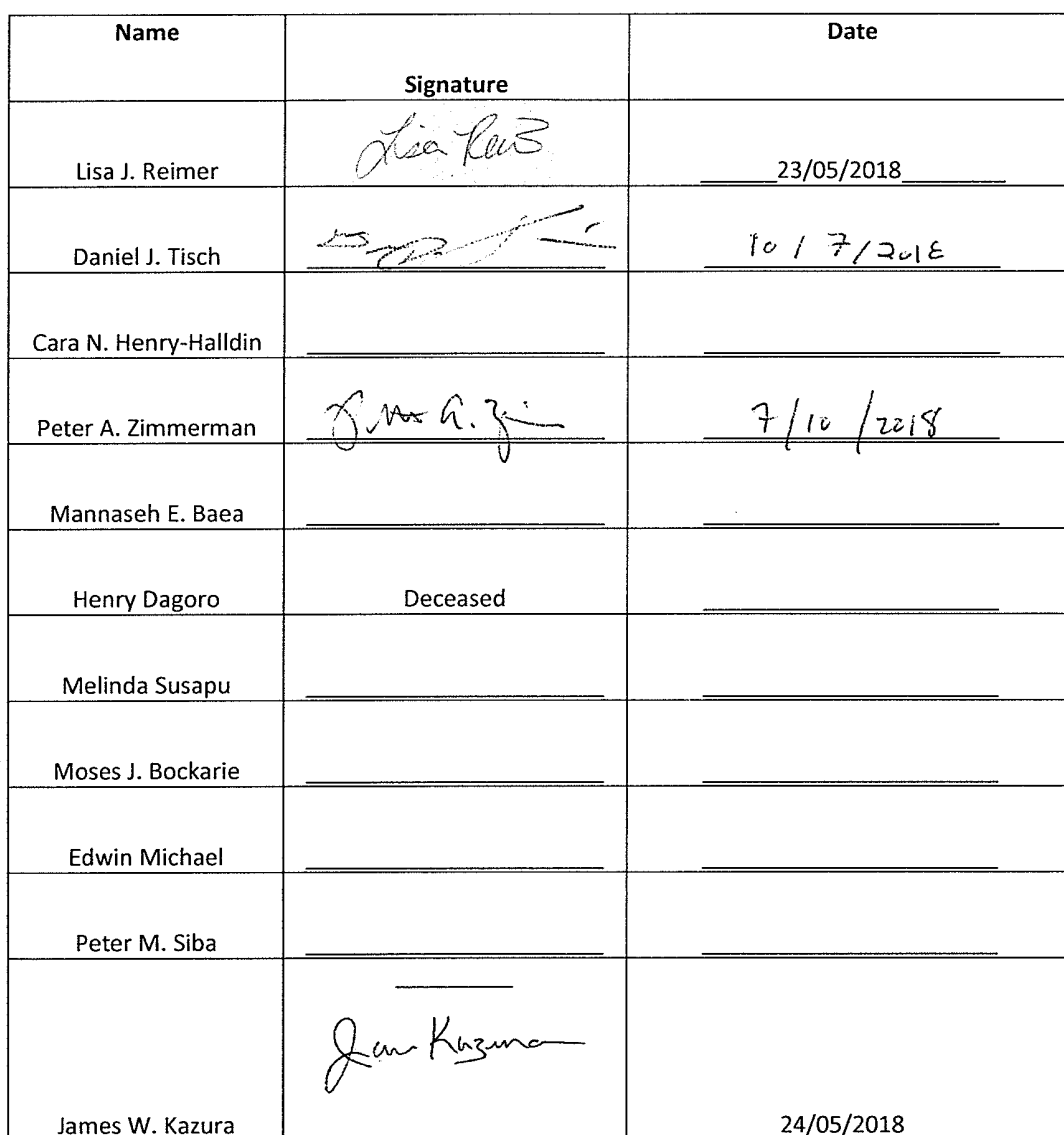 Name
Date
Signature
Lisa J. Reimer
Lisa
23/05/2018
Daniel J. Tisch
10 / 7/2018
Cara N. Henry-Halldin
Peter A. Zimmerman
A. 
7/10/2018
Mannaseh E. Baea
Henry Dagoro
Deceased
Melinda Susapu
Moses J. Bockarie
Edwin Michael
Peter M. Siba
Kazura
James W. Kazura
24/05/2018